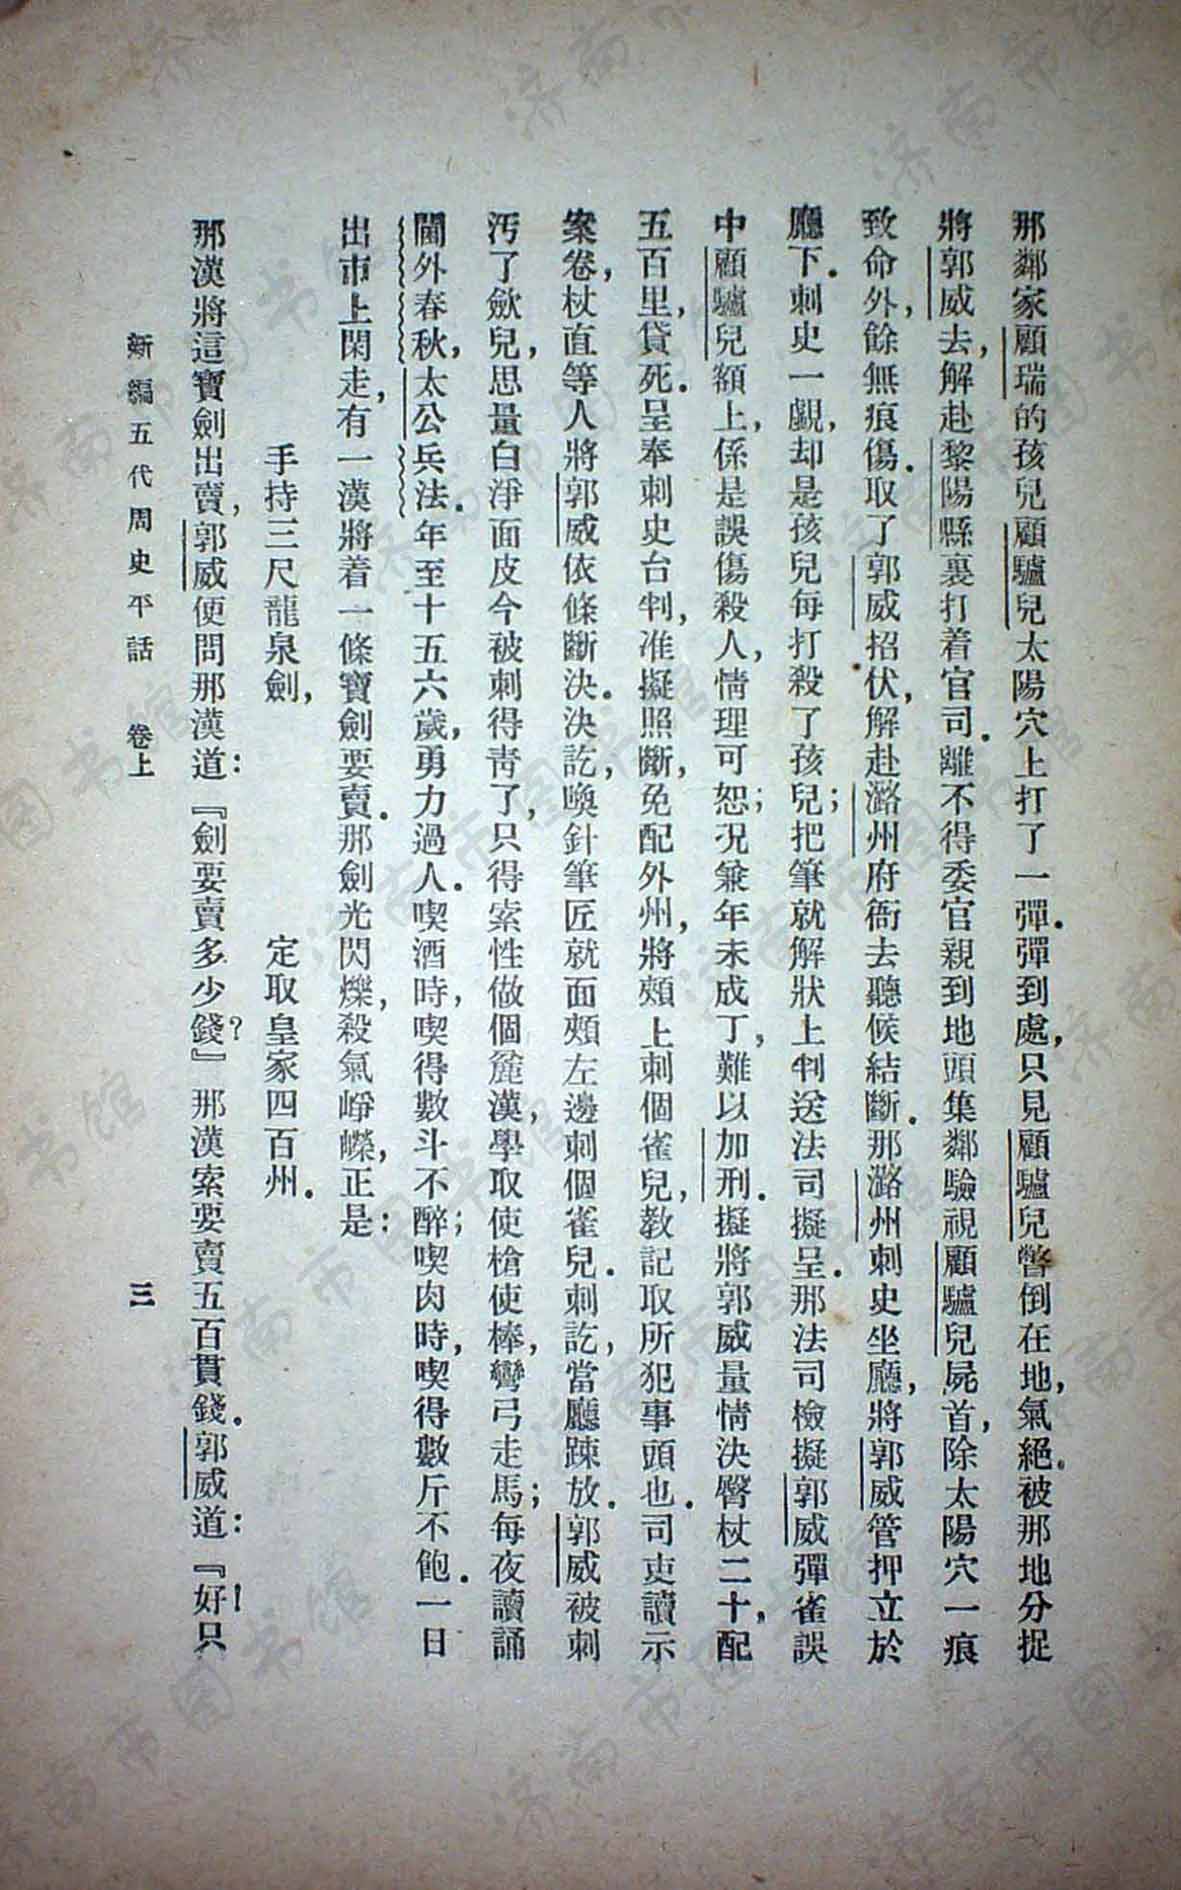 那鄰家顧瑞的孩兒顧驢兒太陽穴上打了一彈．彈到處，只見顧驢兒瞥倒在地，氣絕．被那地分捉
將郭威去，解赴黎陽縣裏打着官司．離不得委官親到地頭集鄰驗視顧驢兒屍首，除太陽穴一痕
致命外，餘無痕傷．取了郭威招伏，解赴潞州府衙去聽候結斷．那潞州刺史坐廳，將郭威管押立於
廳下．刺史一覷，却是孩兒每打殺了孩兒；把筆就解狀上判送法司擬呈．那法司檢擬郭威彈雀誤
中顧驢兒額上，係是誤傷殺人，情理可恕；況兼年未成丁，難以加刑．擬將郭威量情決臀杖二十，配
五百里，貸死．呈奉刺史台判，准擬照斷，免配外州，將頰上刺個雀兒，教記取所犯事頭也．司吏讀示
案卷，杖直等人將郭威依條斷決．決訖，喚針筆匠就面頰左邊刺個雀兒．刺訖，當廳踈放．郭威被刺
汚了歛兒，思量白淨面皮今被刺得靑了，只得索性做個麄漢，學取使槍使棒，彎弓走馬；每夜讀誦
閫外春秋，太公兵法．年至十五六歲，勇力過人．喫酒時，喫得數斗不醉；喫肉時，喫得數斤不飽．一日
出市上閑走，有一漢將着一條寶劍要賣．那劍光閃爍，殺氣崢嶸，正是：
手持三尺龍泉劍，　定取皇家四百州．
那漢將這寶劍出賣，郭威便問那漢道：『劍要賣多少錢？』那漢索要賣五百貫錢．郭威道：『好！只
新編五代周史平話　卷上　三
济南市图书馆